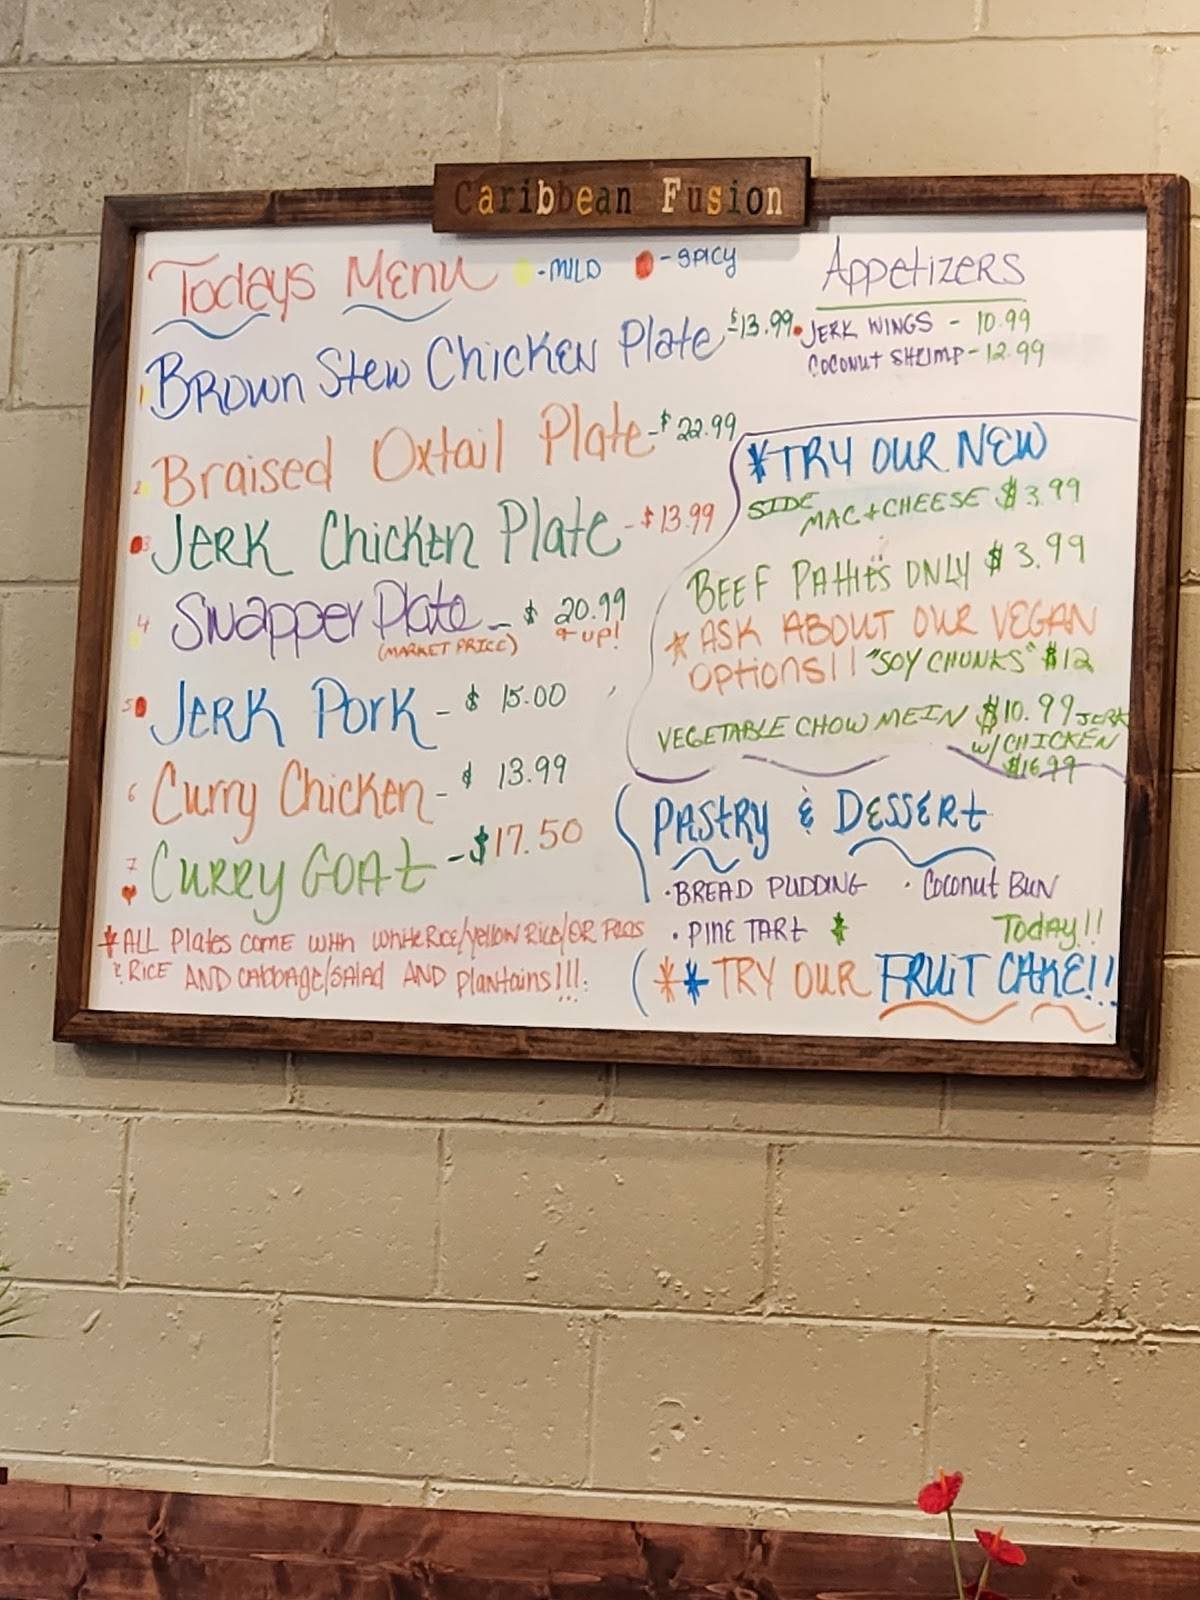 Caribbean Fusion
Todays Menu - MILD - SPICY
1 Brown Stew Chicken Plate - $13.99
2 Braised Oxtail Plate - $22.99
3 Jerk Chicken Plate - $13.99
4 Snapper Plate - $ 20.99
(MARKET PRICE) + up!
5 Jerk Pork - $ 15.00
6 Curry Chicken - $ 13.99
7 Curry Goat - $17.50
* ALL Plates come with white Rice/yellow Rice/OR Peas
& RICE AND cabbage/salad AND plantains!!!
Appetizers
JERK WINGS - 10.99
COCONUT SHRIMP - 12.99
*TRY OUR NEW
SIDE MAC + CHEESE $3.99
BEEF PATTIES ONLY $3.99
* ASK ABOUT OUR VEGAN
OPTIONS!! "SOY CHUNKS" $12
VEGETABLE CHOW MEIN $10.99 JERK
W/ CHICKEN
$16.99
PASTRY & DESSERT
· BREAD PUDDING · Coconut BUN
· PINE TART * Today!!
** TRY OUR FRUIT CAKE!!